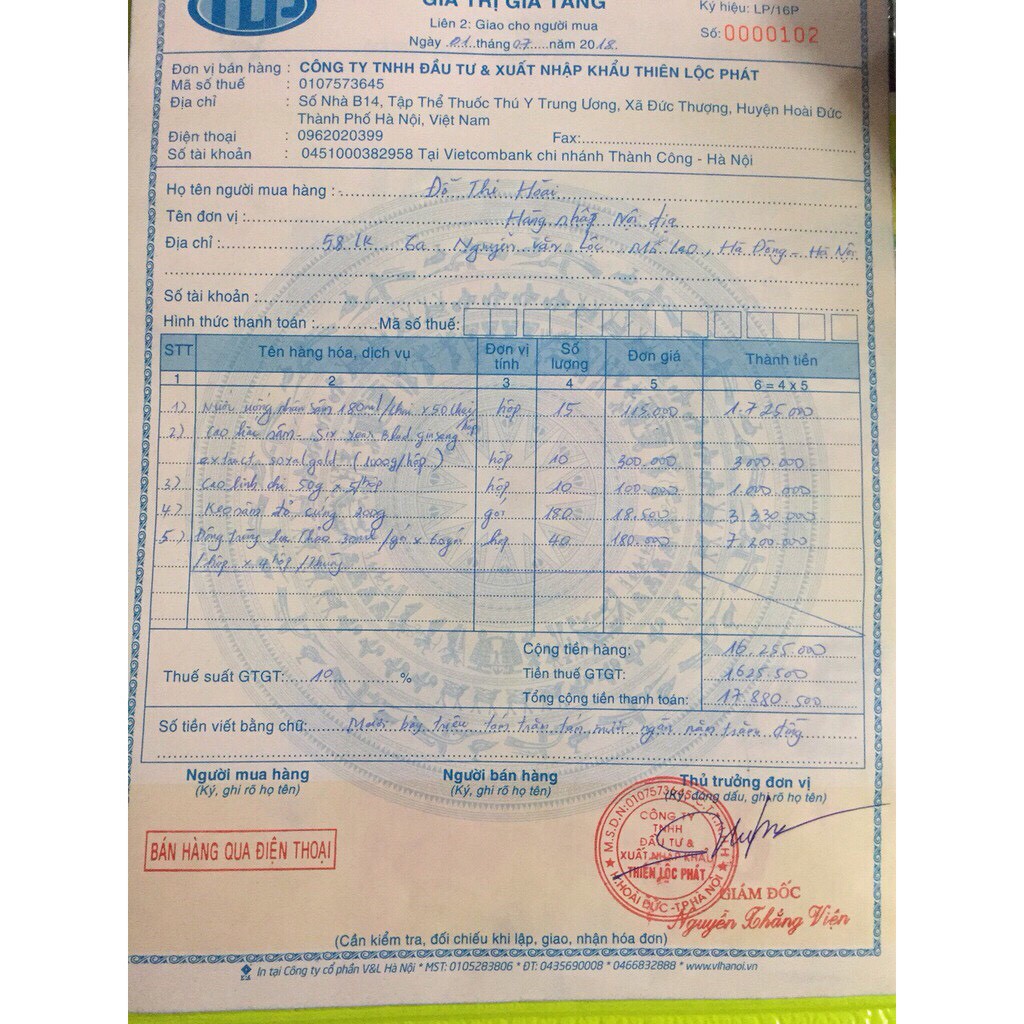 TLP
GIÁ TRỊ GIA TĂNG
Ký hiệu: LP/16P
Liên 2: Giao cho người mua
Số: 0000102
Ngày 01 tháng 07 năm 2018
Đơn vị bán hàng : CÔNG TY TNHH ĐẦU TƯ & XUẤT NHẬP KHẨU THIÊN LỘC PHÁT
Mã số thuế : 0107573645
Địa chỉ : Số Nhà B14, Tập Thể Thuốc Thú Y Trung Ương, Xã Đức Thượng, Huyện Hoài Đức
Thành Phố Hà Nội, Việt Nam
Điện thoại : 0962020399 Fax:
Số tài khoản : 0451000382958 Tại Vietcombank chi nhánh Thành Công - Hà Nội
Họ tên người mua hàng : Đỗ Thị Hoài
Tên đơn vị : Hàng nhập Nội địa
Địa chỉ : 58 lk 6a Nguyễn văn Lộc, Mỗ Lao, Hà Đông - Hà Nội
Số tài khoản :
Hình thức thanh toán : Mã số thuế:
STT Tên hàng hóa, dịch vụ Đơn vị tính Số lượng Đơn giá Thành tiền
1 2 3 4 5 6 = 4 x 5
1) Nước uống nhân sâm 180ml/chai x 50 chai/hộp hộp 15 115.000 1.725.000
2) Cao hắc sâm - Six year ginseng
extract gold (1000g/hộp) hộp 10 300.000 3.000.000
3) Cao linh chi 50g x 5 hộp 10 100.000 1.000.000
4) Kẹo sâm đỏ cứng 200g gói 180 18.500 3.330.000
5) Đông trùng hạ thảo /gói x 60 gói hộp 40 180.000 7.200.000
/hộp x hộp/thùng
Cộng tiền hàng: 16.255.000
Thuế suất GTGT: 10 % Tiền thuế GTGT: 1625.500
Tổng cộng tiền thanh toán: 17.880.500
Số tiền viết bằng chữ: Mười bảy triệu tám trăm tám mươi ngàn năm trăm đồng
Người mua hàng Người bán hàng Thủ trưởng đơn vị
(Ký, ghi rõ họ tên) (Ký, ghi rõ họ tên) (Ký, đóng dấu, ghi rõ họ tên)
BÁN HÀNG QUA ĐIỆN THOẠI
M.S.D.N:0107573645-C.T.T.N.H.H
CÔNG TY
TNHH
ĐẦU TƯ &
XUẤT NHẬP KHẨU
THIÊN LỘC PHÁT
H.HOÀI ĐỨC - TP.HÀ NỘI
GIÁM ĐỐC
Nguyễn Thắng Viện
(Cần kiểm tra, đối chiếu khi lập, giao, nhận hóa đơn)
In tại Công ty cổ phần V&L Hà Nội * MST: 0105283806 * ĐT: 0435690008 * 0466832888 * www.vlhanoi.vn